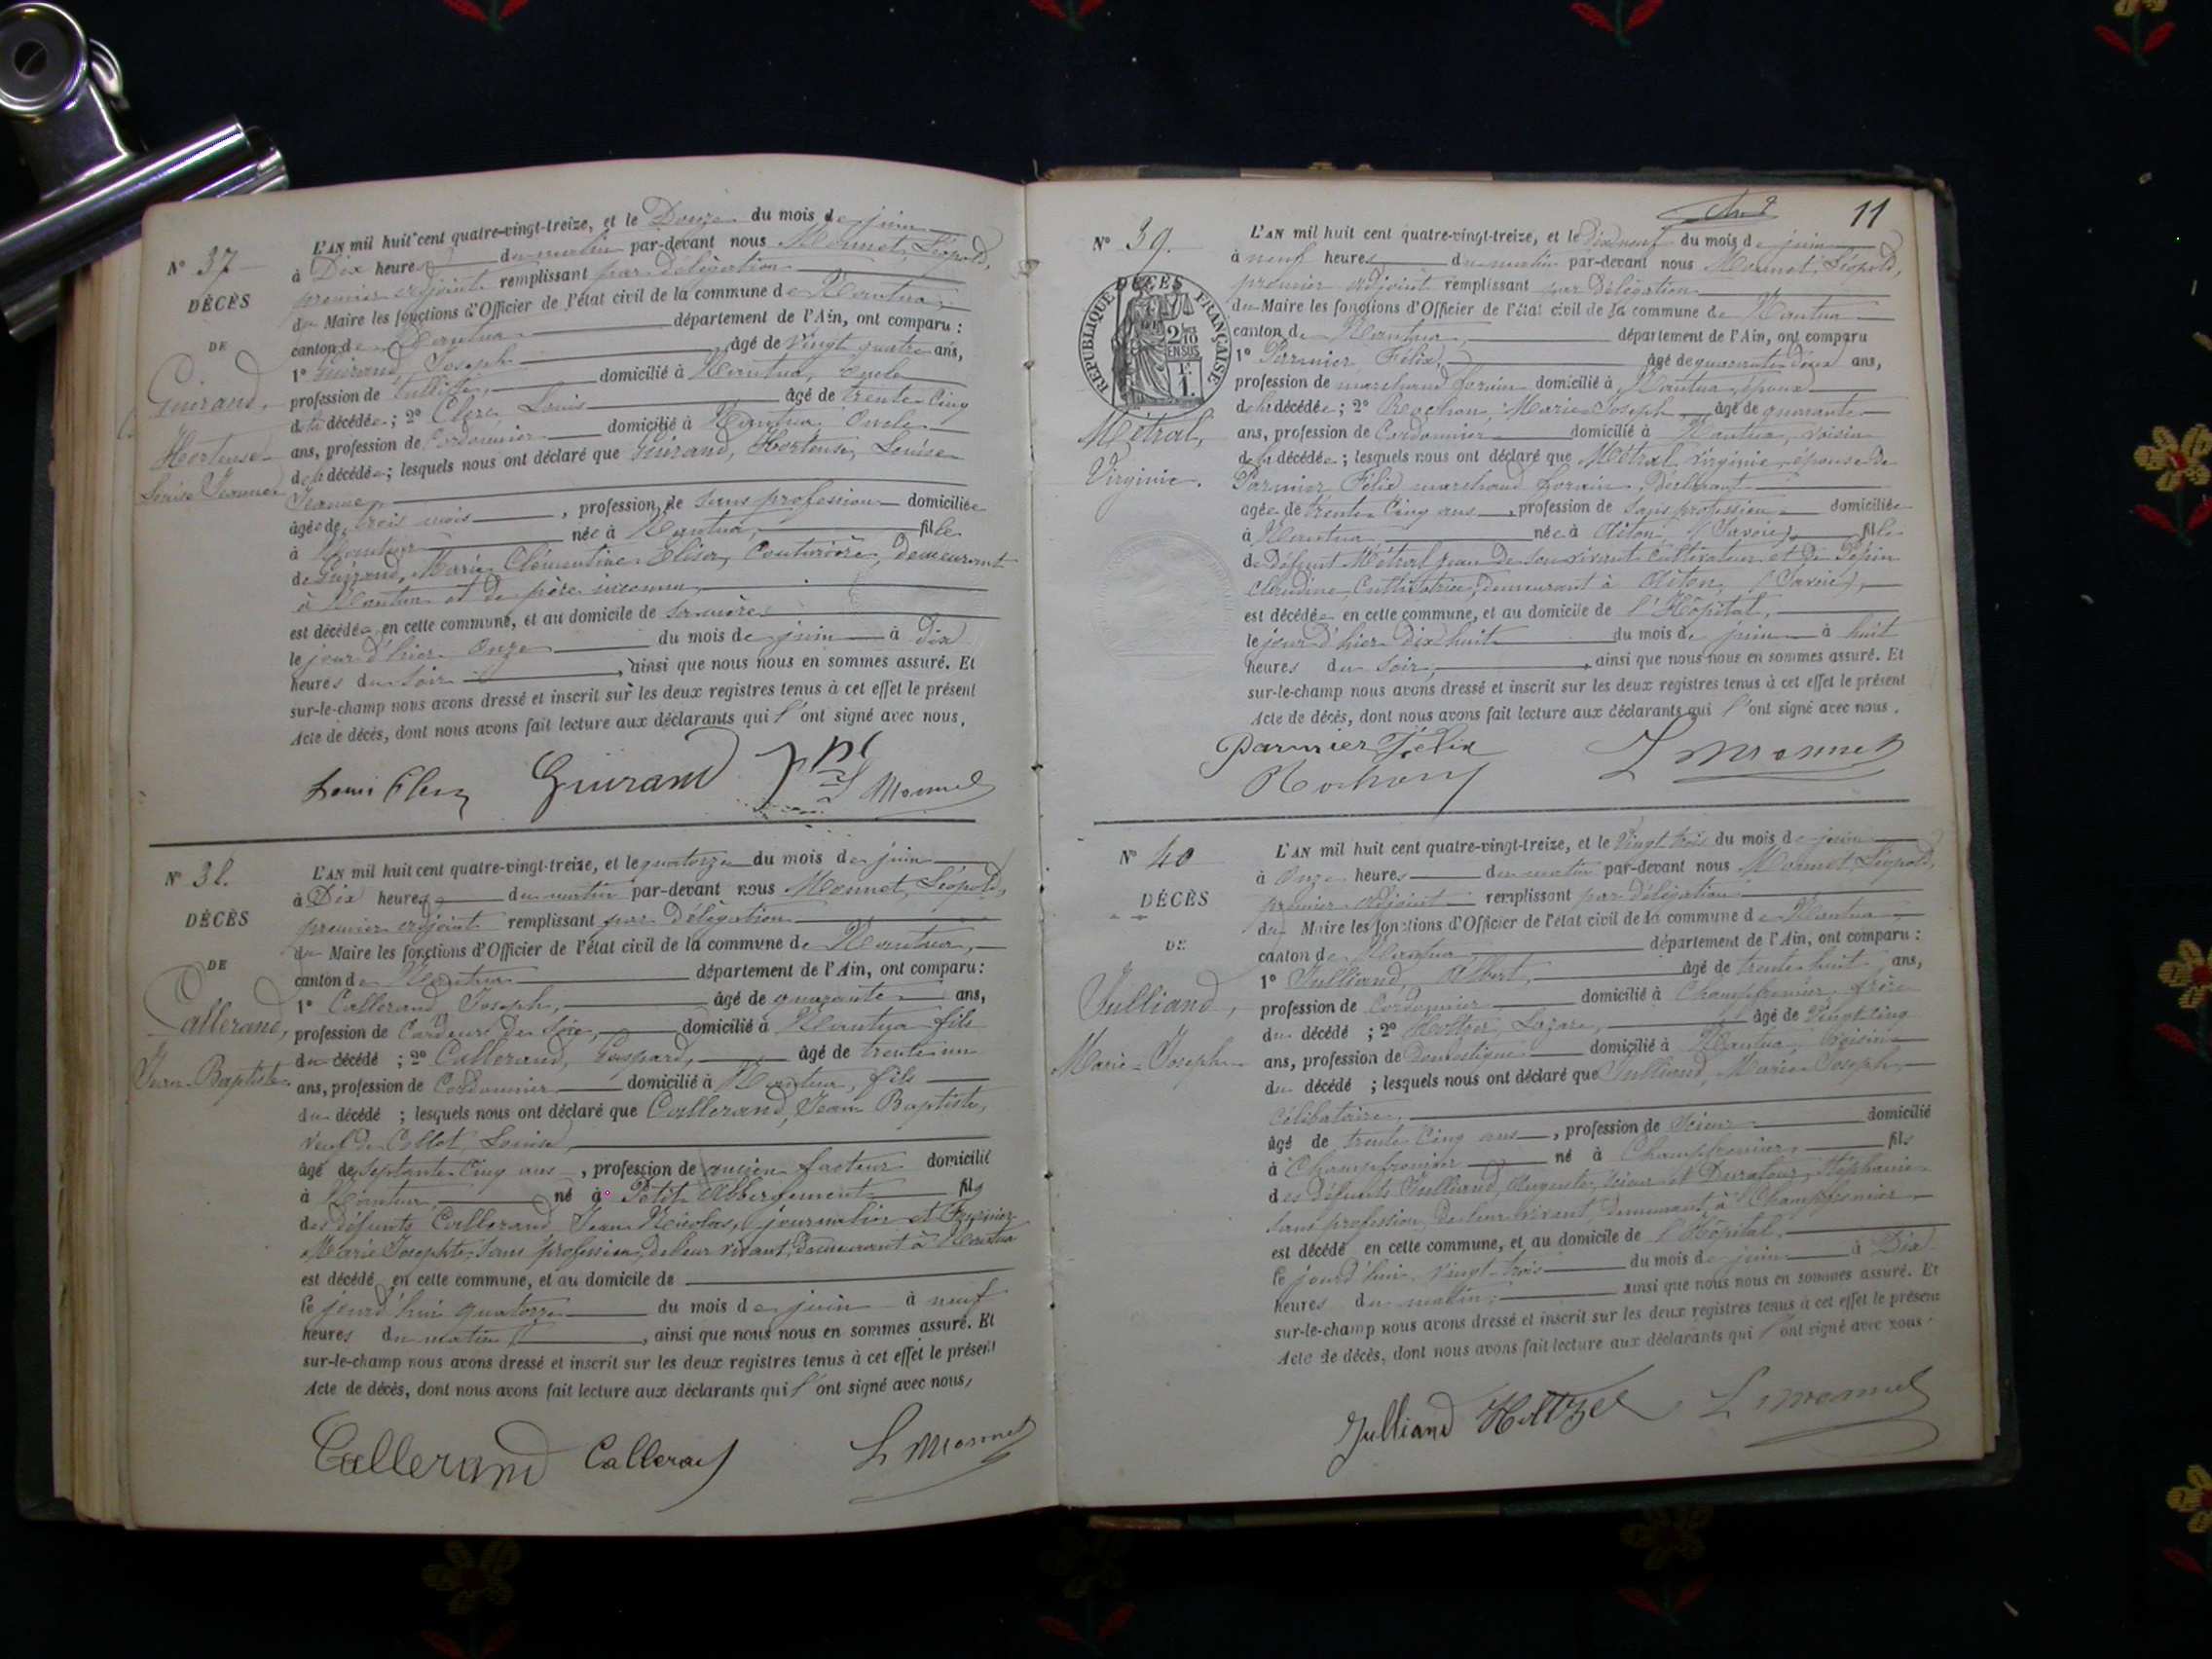 N° 37
DÉCÈS
DE
Guirand,
Hortense
Louise Jeanne
L'AN mil huit cent quatre-vingt-treize, et le Douze du mois de juin
à Dix heures du matin par-devant nous Monnet, Léopold,
premier adjoint remplissant par délégation
du Maire les fonctions d'Officier de l'état civil de la commune de Nantua,
canton de Nantua département de l'Ain, ont comparu :
1° Guirand, Joseph âgé de vingt quatre ans,
profession de tulliste, domicilié à Nantua, oncle
de la décédée ; 2° Clerc Louis âgé de trente cinq
ans, profession de Cordonnier domicilié à Nantua Oncle
de la décédée ; lesquels nous ont déclaré que Guirand, Hortense, Louise
Jeanne,
âgée de trois mois, profession de sans profession domiciliée
à Nantua née à Nantua, fille
de Guirand, Marie Clémentine Elisa, Couturière, demeurant
à Nantua et de père inconnu,
est décédée en cette commune, et au domicile de sa mère
le jour d'hier Onze du mois de juin à dix
heures du soir, ainsi que nous nous en sommes assuré. Et
sur-le-champ nous avons dressé et inscrit sur les deux registres tenus à cet effet le présent
Acte de décès, dont nous avons fait lecture aux déclarants qui l'ont signé avec nous,
Louis Clerc Guirand Monnet
N° 38.
DÉCÈS
DE
Callerand,
Jean-Baptiste
L'AN mil huit cent quatre-vingt-treize, et le quatorze du mois de juin
à Dix heures du matin par-devant nous Monnet, Léopold,
premier adjoint remplissant par Délégation
du Maire les fonctions d'Officier de l'état civil de la commune de Nantua,
canton de Nantua département de l'Ain, ont comparu :
1° Callerand Joseph, âgé de quarante ans,
profession de Cardeur de Soie, domicilié à Nantua fils
du décédé ; 2° Callerand, Gaspard, âgé de trente un
ans, profession de Cordonnier domicilié à Nantua, fils
du décédé ; lesquels nous ont déclaré que Callerand, Jean Baptiste,
veuf de Collot, Louise,
âgé de septante Cinq ans, profession de ancien facteur domicilié
à Nantua, né à Petit Abbergement fils
des défunts Callerand, Jean Nicolas, journalier et
Marie Josephte, sans profession, de leur vivant, demeurant à Nantua
est décédé en cette commune, et au domicile de
le jourd'hui quatorze du mois de juin à neuf
heures du matin, ainsi que nous nous en sommes assuré. Et
sur-le-champ nous avons dressé et inscrit sur les deux registres tenus à cet effet le présent
Acte de décès, dont nous avons fait lecture aux déclarants qui l'ont signé avec nous,
Callerand Callerand L Monnet
11
N° 39.
DÉCÈS
RÉPUBLIQUE FRANÇAISE
2/10 EN SUS
1 F.
Métral,
Virginie.
L'AN mil huit cent quatre-vingt-treize, et le Dix neuf du mois de juin
à neuf heures du matin par-devant nous Monnet, Léopold,
premier adjoint remplissant par Délégation
du Maire les fonctions d'Officier de l'état civil de la commune de Nantua
canton de Nantua, département de l'Ain, ont comparu
1° Parmier Félix, âgé de quarante deux ans,
profession de marchand forain domicilié à Nantua, époux
de la décédée ; 2° Rochon, Marie Joseph, âgé de quarante
ans, profession de Cordonnier domicilié à Nantua, voisin
de la décédée ; lesquels nous ont déclaré que Métral virginie, épouse de
Parmier Félix marchand forain, Déclarant
agée de trente Cinq ans, profession de Sans profession domiciliée
à Nantua née à Aiton, (Savoie), fille
de défunt Métral Jean de son vivant Cultivateur et de Pépin
Claudine, Cultivatrice, demeurant à Aiton, (Savoie),
est décédée en cette commune, et au domicile de l'Hôpital,
le jour d'hier Dix huit du mois de juin à huit
heures du Soir, ainsi que nous nous en sommes assuré. Et
sur-le-champ nous avons dressé et inscrit sur les deux registres tenus à cet effet le présent
Acte de décès, dont nous avons fait lecture aux déclarants qui l'ont signé avec nous.
Parmier Félix L Monnet
Rochon
N° 40
DÉCÈS
DE
Julliand,
Marie-Joseph
L'AN mil huit cent quatre-vingt-treize, et le Vingt trois du mois de juin
à Onze heures du matin par-devant nous Monnet Léopold,
premier adjoint remplissant par délégation
du Maire les fonctions d'Officier de l'état civil de la commune de Nantua,
canton de Nantua département de l'Ain, ont comparu :
1° Julliand, Albert, âgé de trente huit ans,
profession de Cordonnier domicilié à Champfromier, frère
du décédé ; 2° Holtzel, Lazare, âgé de Vingt cinq
ans, profession de Domestique domicilié à Nantua, Voisin
du décédé ; lesquels nous ont déclaré que Julliand, Marie Joseph,
Célibataire,
âgé de trente Cinq ans, profession de Scieur domicilié
à Champfromier né à Champfromier fils
des défunts Julliand, Auguste, scieur et Ducatour, Stéphanie
Sans profession, de leur vivant, demeurant à Champfromier
est décédé en cette commune, et au domicile de l'Hôpital,
le jourd'hui Vingt-trois du mois de juin à Dix
heures du matin; ainsi que nous nous en sommes assuré. Et
sur-le-champ nous avons dressé et inscrit sur les deux registres tenus à cet effet le présent
Acte de décès, dont nous avons fait lecture aux déclarants qui l'ont signé avec nous.
Julliand Holtzel L Monnet